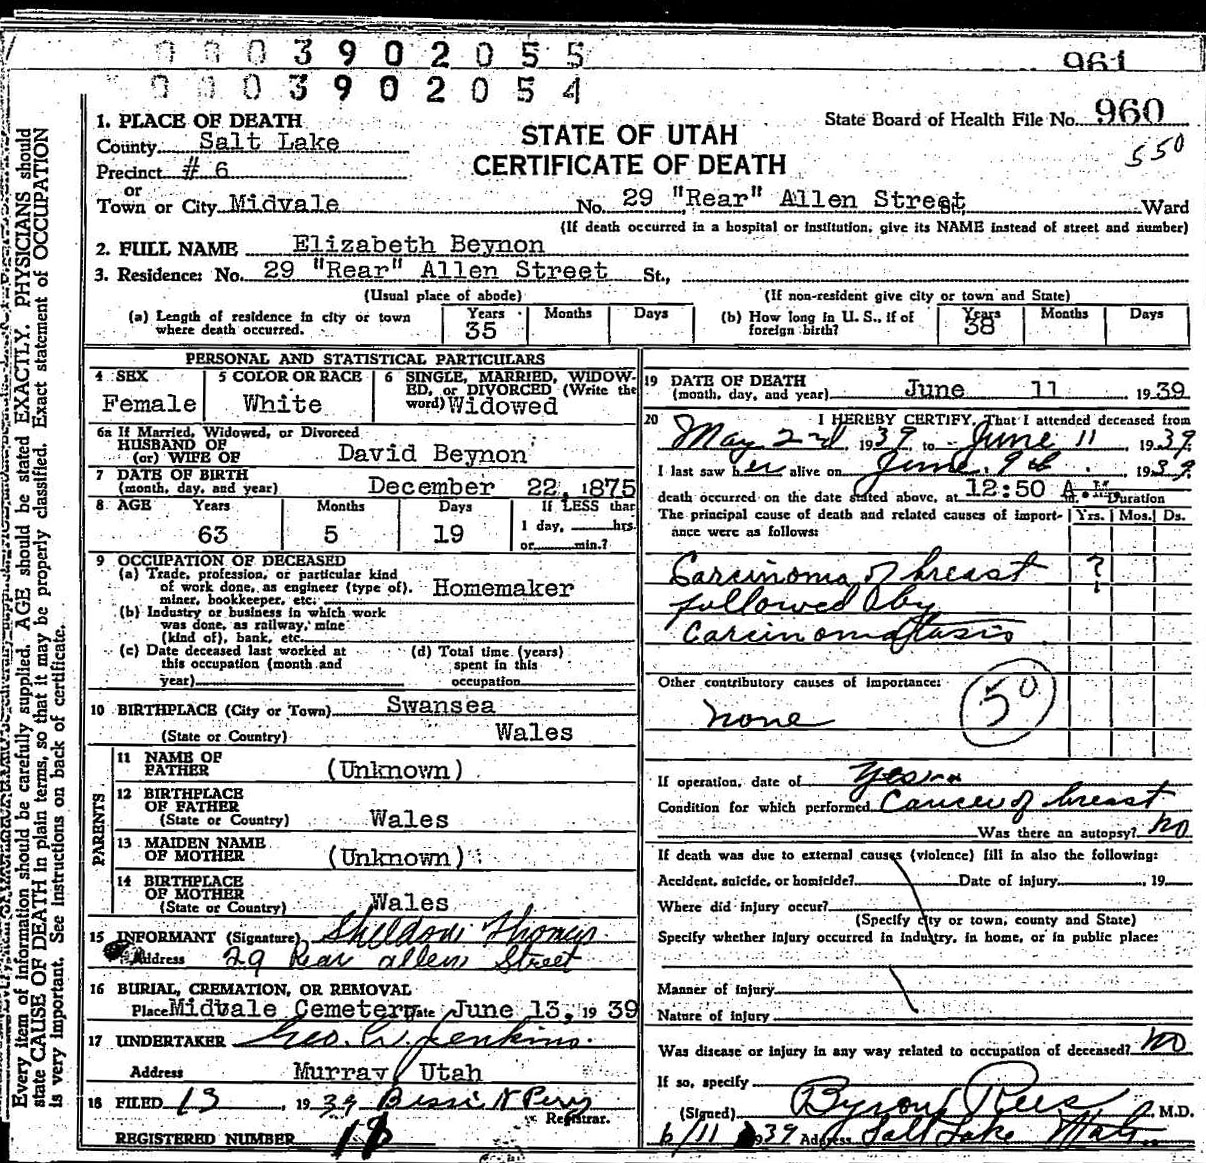 0 0 0 3 9 0 2 0 5 5
961
0 0 0 3 9 0 2 0 5 4
State Board of Health File No. 960
550
STATE OF UTAH
CERTIFICATE OF DEATH
1. PLACE OF DEATH
County Salt Lake
Precinct # 6
or
Town or City Midvale No. 29 "Rear" Allen Street St. Ward
(If death occurred in a hospital or institution, give its NAME instead of street and number)
2. FULL NAME Elizabeth Beynon
3. Residence: No. 29 "Rear" Allen Street St.,
(Usual place of abode) (If non-resident give city or town and State)
(a) Length of residence in city or town where death occurred. Years 35 Months Days
(b) How long in U. S., if of foreign birth? Years 38 Months Days
PERSONAL AND STATISTICAL PARTICULARS
4 SEX Female
5 COLOR OR RACE White
6 SINGLE, MARRIED, WIDOW-
ED, or DIVORCED (Write the
word) Widowed
6a If Married, Widowed, or Divorced
HUSBAND OF
(or) WIFE OF David Beynon
7 DATE OF BIRTH
(month, day, and year) December 22, 1875
8 AGE Years 63 Months 5 Days 19
If LESS than
1 day, hrs.
or min.?
9 OCCUPATION OF DECEASED
(a) Trade, profession, or particular kind
of work done, as engineer (type of).
miner, bookkeeper, etc. Homemaker
(b) Industry or business in which work
was done, as railway, mine
(kind of), bank, etc.
(c) Date deceased last worked at
this occupation (month and
year)
(d) Total time (years)
spent in this
occupation
10 BIRTHPLACE (City or Town) Swansea
(State or Country) Wales
PARENTS
11 NAME OF
FATHER (Unknown)
12 BIRTHPLACE
OF FATHER
(State or Country) Wales
13 MAIDEN NAME
OF MOTHER (Unknown)
14 BIRTHPLACE
OF MOTHER
(State or Country) Wales
15 INFORMANT (Signature) Sheldon Thomas
Address 29 Rear allen Street
16 BURIAL, CREMATION, OR REMOVAL
Place Midvale Cemetery Date June 13, 19 39
17 UNDERTAKER Geo. W. Jenkins.
Address Murray Utah
18 FILED 13, 19 39 Bessie N Perry
Registrar.
REGISTERED NUMBER 18
19 DATE OF DEATH
(month, day, and year) June 11 19 39
20 I HEREBY CERTIFY, That I attended deceased from
May 2nd 19 39 to June 11 19 39
I last saw her alive on June 9th 19 39
death occurred on the date stated above, at 12:50 A. M. m. Duration
The principal cause of death and related causes of import-
ance were as follows: Yrs. Mos. Ds.
Carcinoma of breast ?
followed by
Carcinomatasis
Other contributory causes of importance:
none
50
If operation, date of Yes
Condition for which performed Cancer of breast
Was there an autopsy? No
If death was due to external causes (violence) fill in also the following:
Accident, suicide, or homicide? Date of injury , 19
Where did injury occur?
(Specify city or town, county and State)
Specify whether injury occurred in industry, in home, or in public place:
Manner of injury
Nature of injury
Was disease or injury in any way related to occupation of deceased? No
If so, specify
(Signed) Byron Rees M.D.
6/11 1939 Address Salt Lake Utah
Every item of information should be carefully supplied. AGE should be stated EXACTLY. PHYSICIANS should
state CAUSE OF DEATH in plain terms, so that it may be properly classified. Exact statement of OCCUPATION
is very important. See instructions on back of certificate.